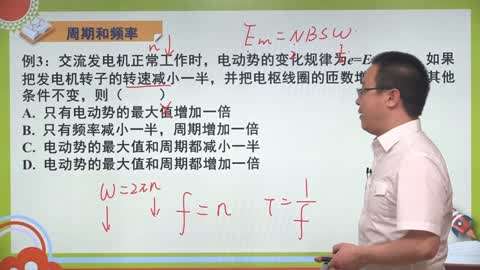 周期和频率
n↓ Em=NBSω
例3：交流发电机正常工作时，电动势的变化规律为e=E 如果
把发电机转子的转速减小一半，并把电枢线圈的匝数增 其他
条件不变，则（ ）
A. 只有电动势的最大值增加一倍
B. 只有频率减小一半，周期增加一倍
C. 电动势的最大值和周期都减小一半
D. 电动势的最大值和周期都增加一倍
ω=2πn
f=n T=1/f